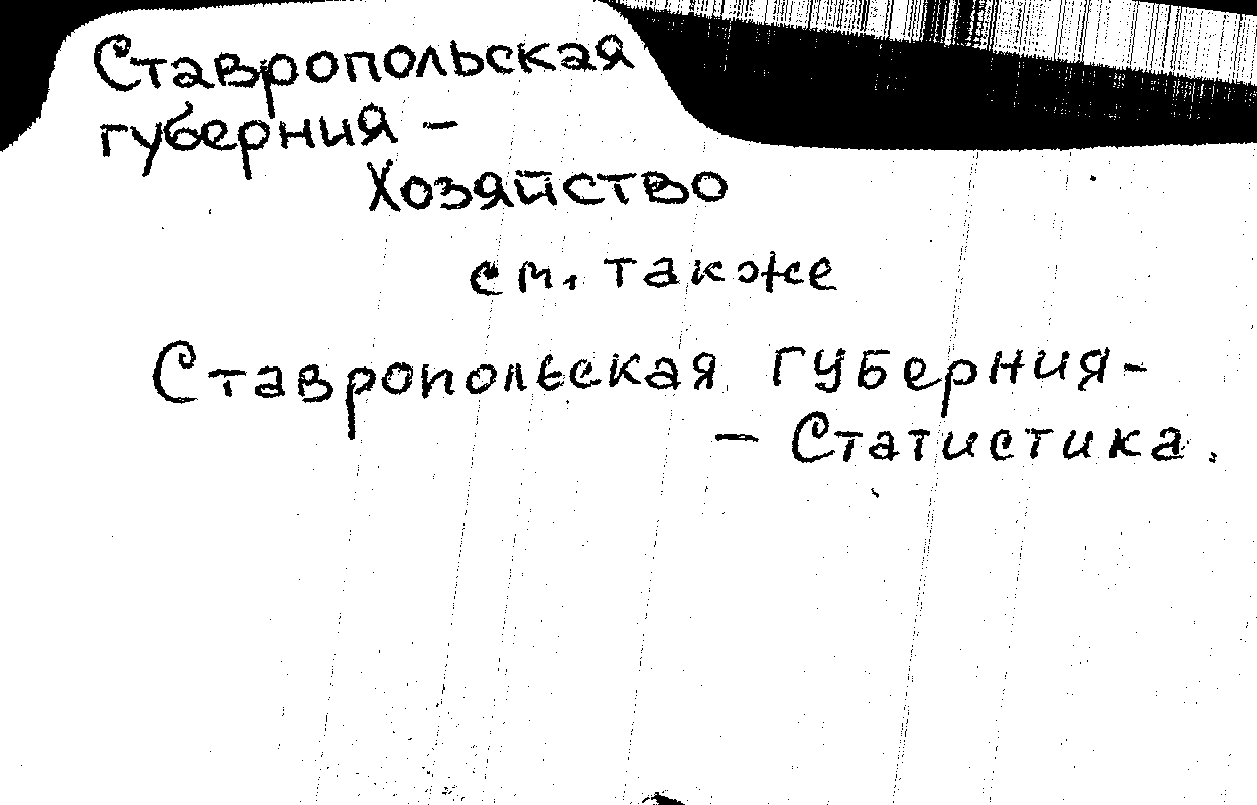 Ставропольская
губерния –
Хозяйство
см. также
Ставропольская губерния –
– Статистика.